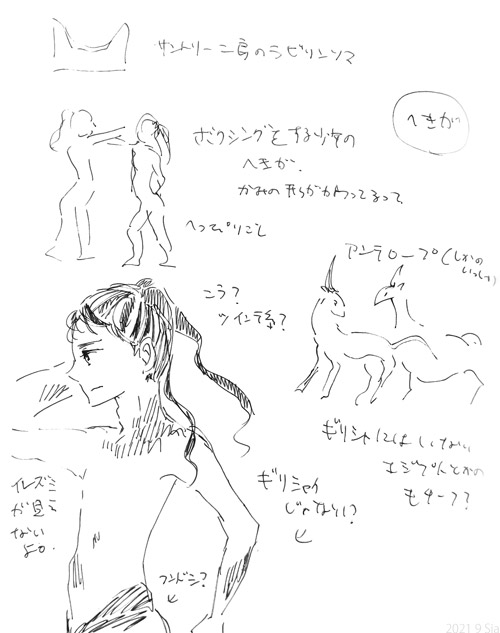 サントリーニ島のラビリンソマ
へきが
ボクシングをする少年の
へきが、
かみの形がかわってるって
へっぴりごし
アンテロープ(しかの
いっしゅ)
こう?
ツインテ系?
ギリシャにはいない
エジプトとかの
モチーフ?
イレズミ
が見え
ない
よね。
ギリシャ人
じゃない?
フンドシ?
2021.9 Sia